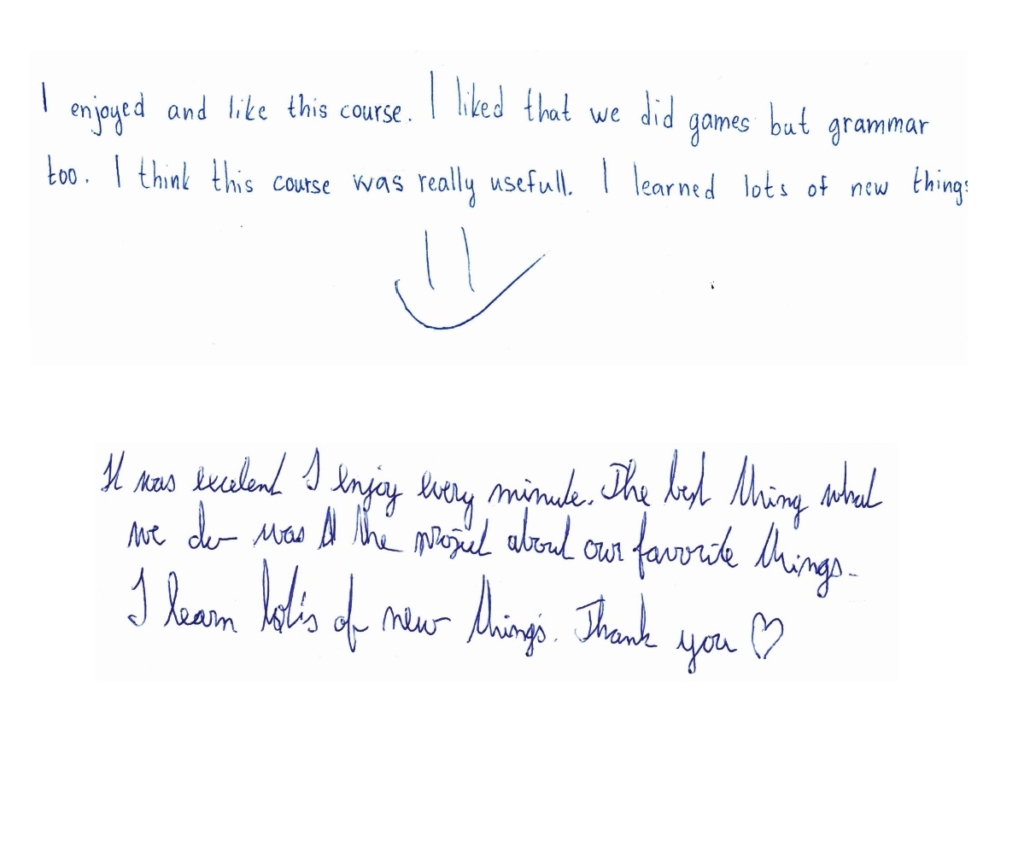 I enjoyed and like this course. I liked that we did games but grammar
too. I think this course was really usefull. I learned lots of new things
It was excelent I enjoy every minute. The best thing what
we do was the project about our favorite things.
I learn lot's of new things. Thank you ♡